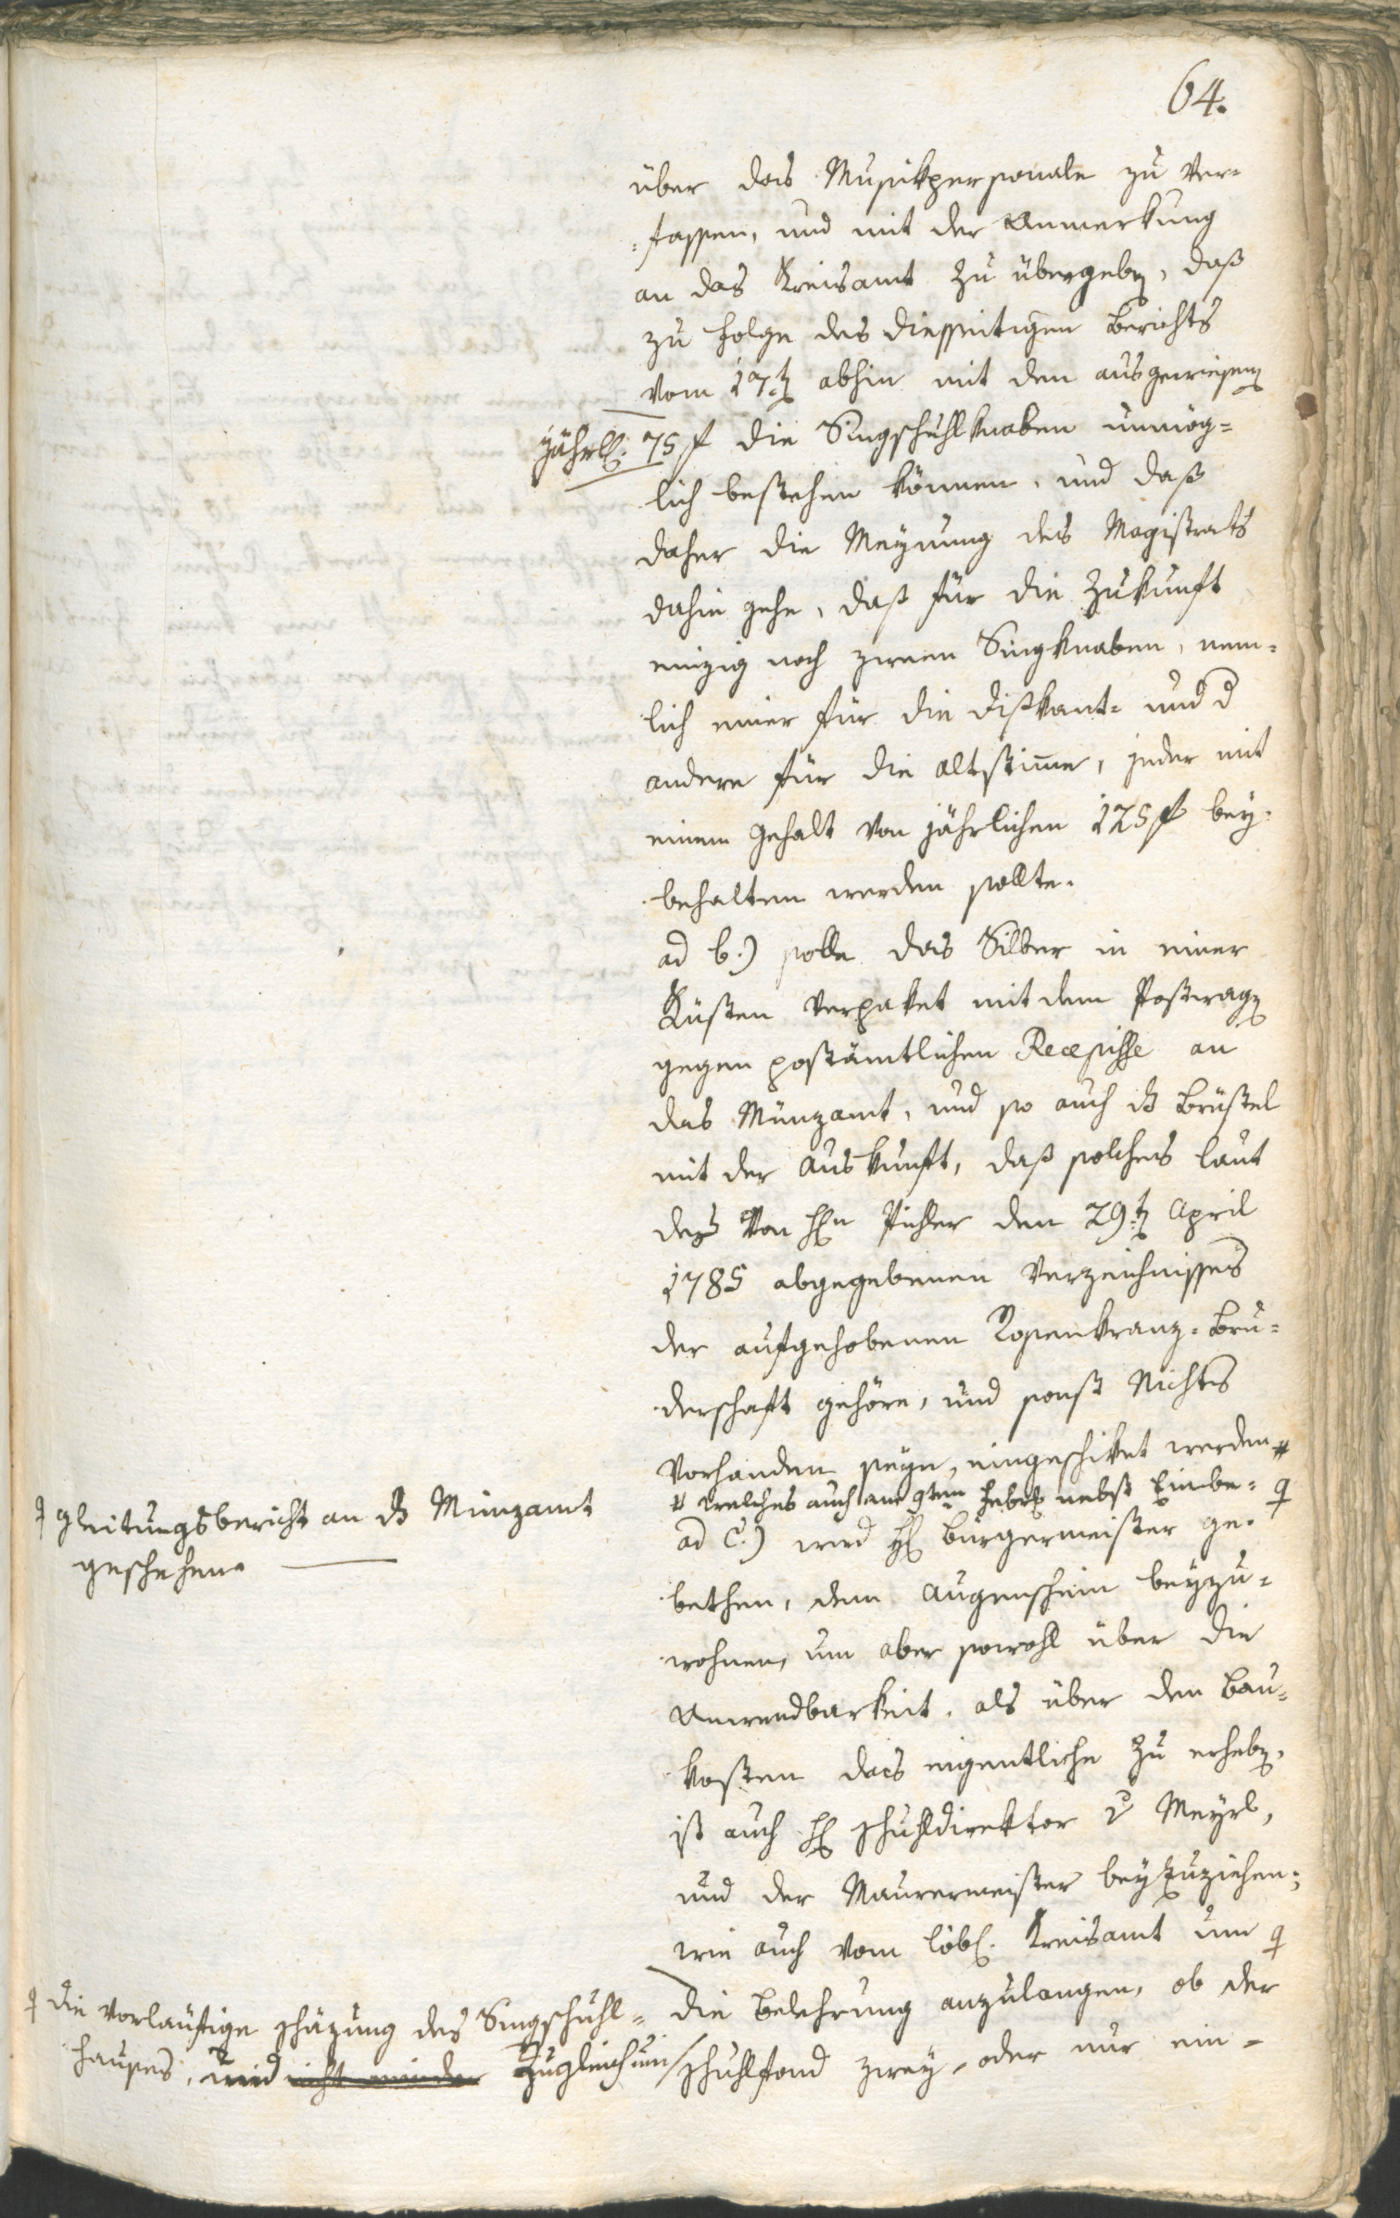 64.
über das Musikpersonale zu ver-
-fassen, und mit der Anmerkung
an das Kreisamt zu übergeben, daß
zu Folge des diesseitigen Berichts
vom 17t abhin mit den ausgewiesen
jährl: 75 f die Singschuhlknaben unmög-
lich bestehen können, und daß
daher die Meynung des Magistrats
dahin gehe, daß für die Zukunft
einzig noch zween Singknaben, nem-
lich einer für die Diskant- und d
andere für die Altstimme, jeder mit
einem Gehalt von jährlichen 125 f bey-
behalten werden sollte.
ad b.) solle das Silber in einer
Kisten verpaket mit dem Postwag
gegen postämtlichen Recepisse an
das Münzamt, und so auch ds Brüstel
mit der Auskunft, daß solches laut
des von Hn Pichler den 29t April
1785 abgegebenen Verzeichnisses
der aufgehobenen Rosenkranz-Bru-
derschaft gehöre, und sonst Nichts
vorhanden seye, eingeschiket werden #
# welches auch am 9ten Febr nebst Einbe-
gleitungsbericht an ds Münzamt
geschehen.
ad c.) wird H Burgermeister ge-
bethen, dem Augenschein beyzu-
wohnen, um aber sowohl über die
Anwendbarkeit, als über den Bau-
kosten das eigentliche zu erheben,
ist auch H Schuhldirektor v Meyrl,
und der Maurermeister beyzuziehen;
wie auch vom löbl. Kreisamt um
die vorläufige Schäzung des Singschuhl-
hauses, und nicht minder zugleich um
die Belehrung anzulangen, ob der
Schuhlfond zwey- oder nur ein-